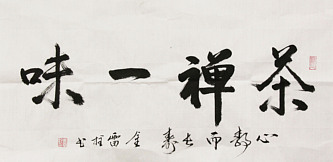 茶禅一味
心静而长寿 金雷 书